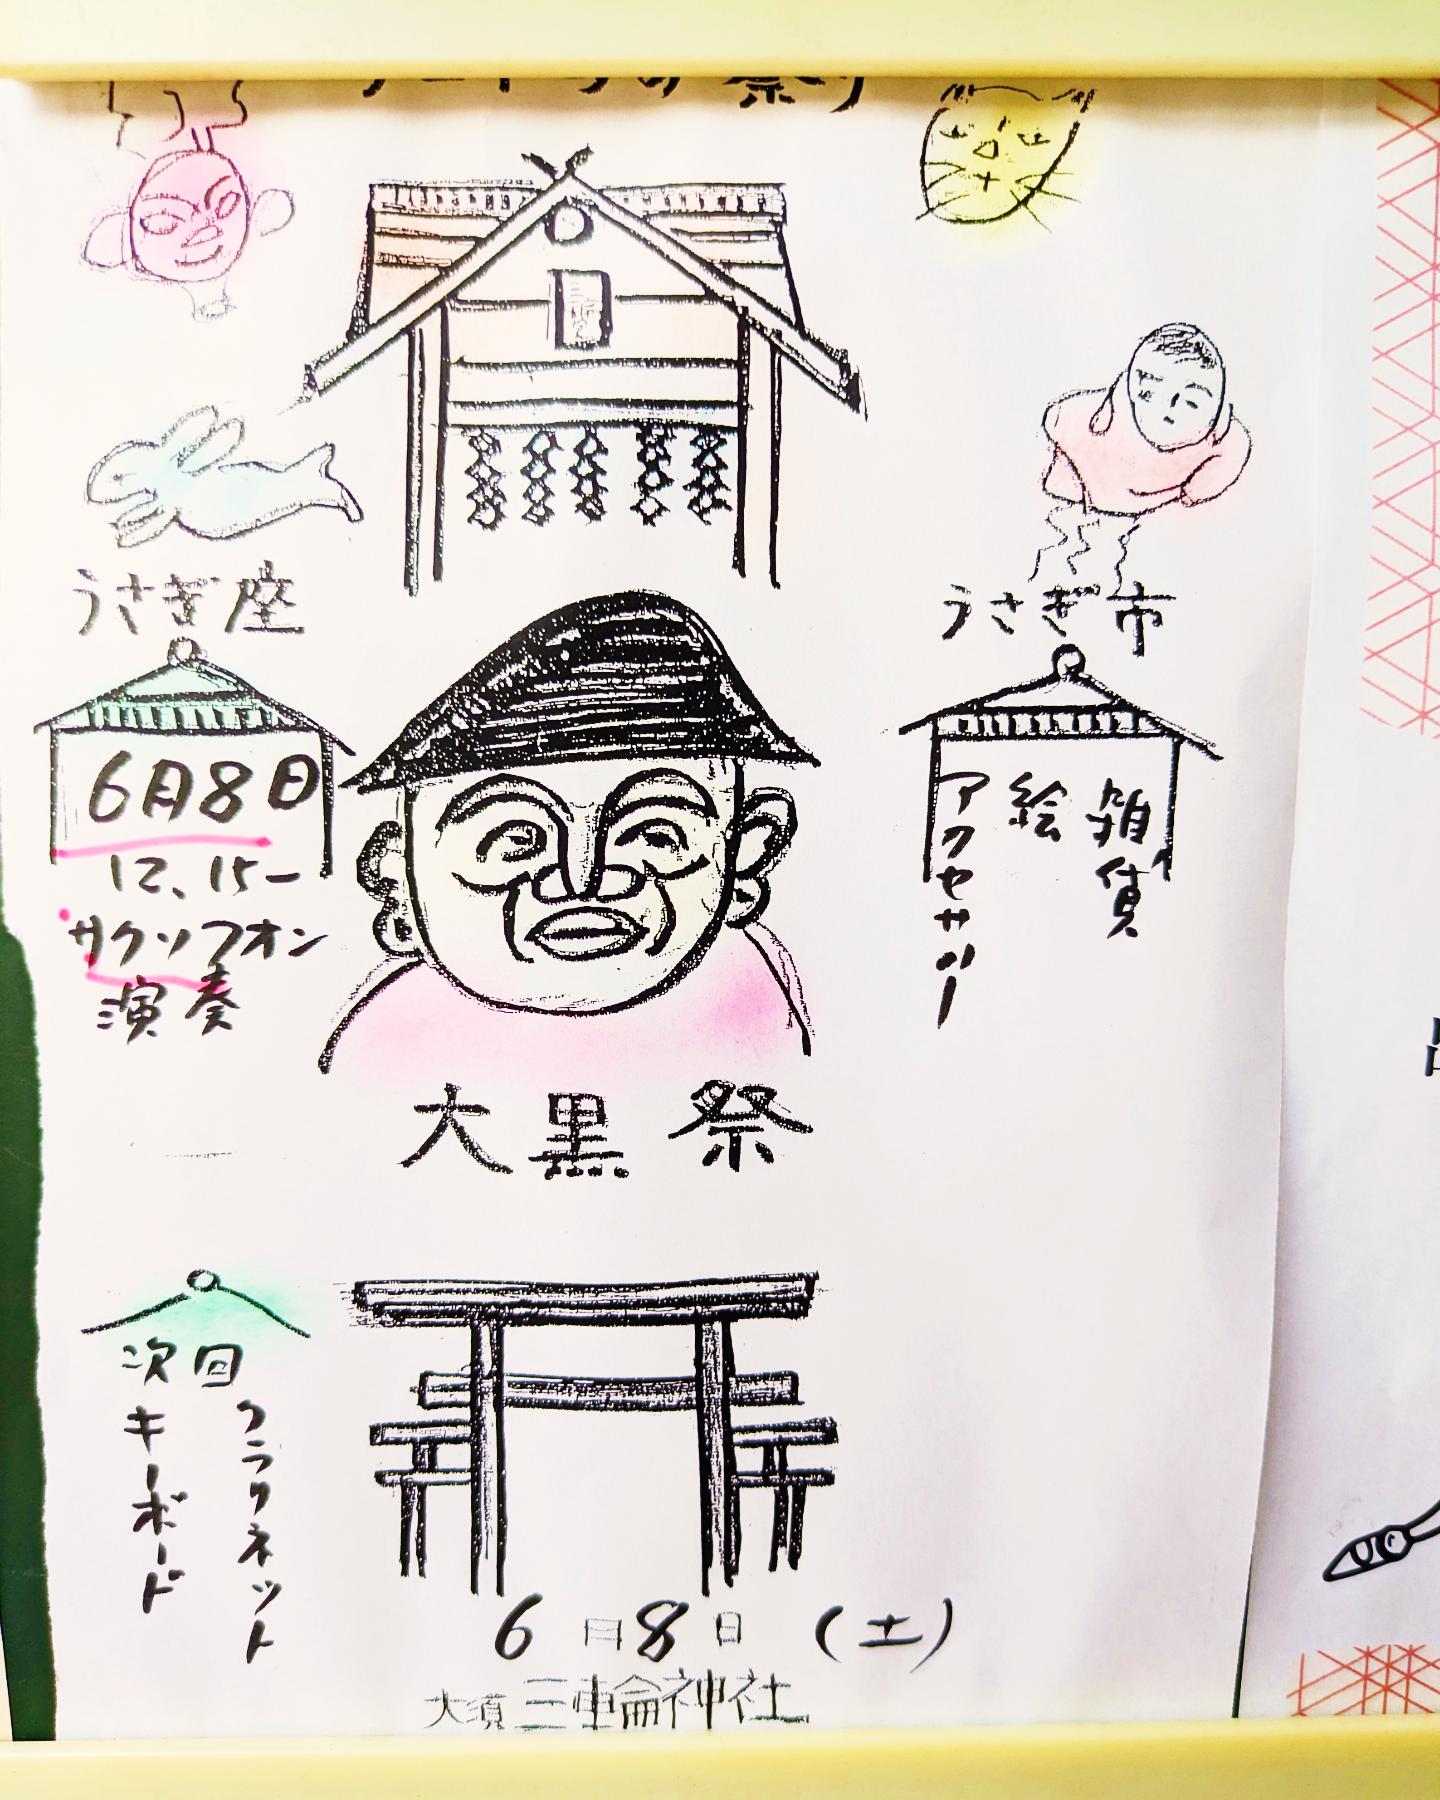 うさぎ座
6月8日
12、15ー
サクソフォン
演奏
うさぎ市
雑貨
絵
アクセサリー
大黒祭
次回
クラリネット
キーボード
6月8日(土)
大須三輪神社